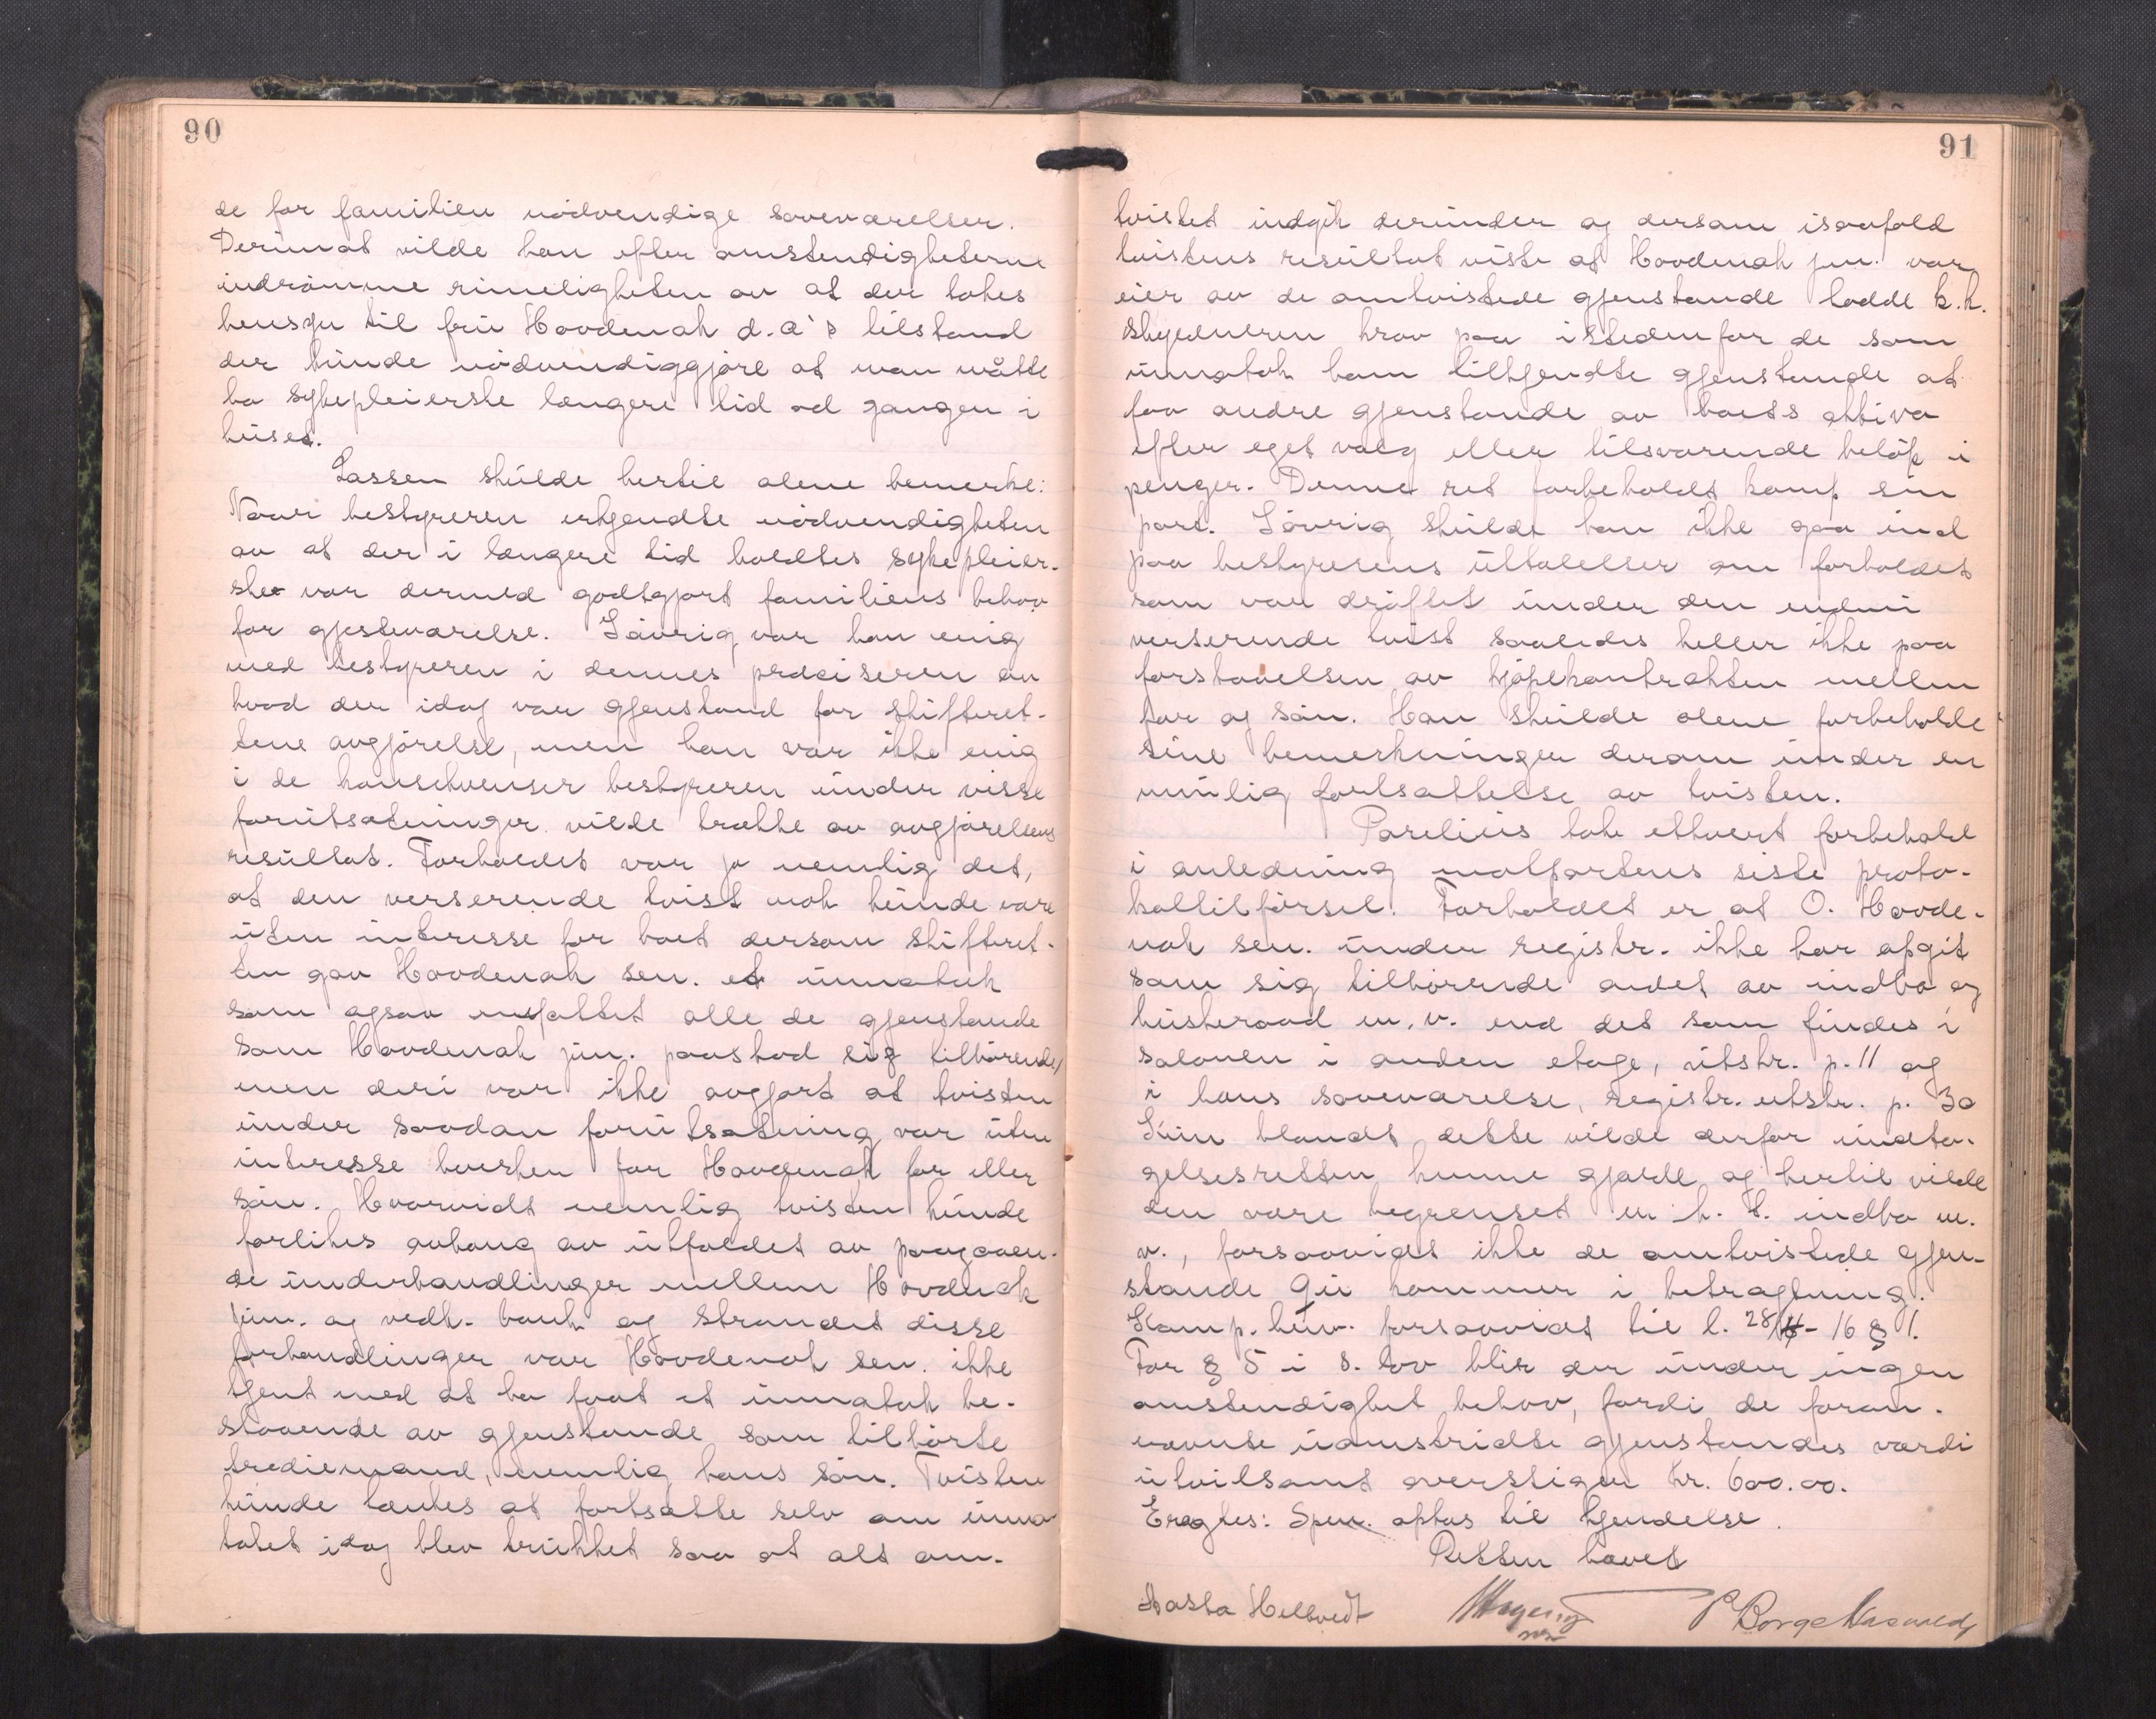 90
de for familien nödvendige soveværelser.
Derimot vilde han efter omstendigheterne
indrømme rimeligheten av at der tokes
hensyn til frü Hovdenak d.æ's tilstand
der künde nödvendiggjøre at man måtte
ha sykepleierske længere tid ad gangen i
hüset.
Lassen skülde hertil alene bemerke:
Naar bestyreren erkjendte nödvendigheten
av at der i længere tid holdtes sykepleier-
ske var dermed godtgjort familiens behov
for gjesteværelse. Iövrig var han enig
med bestyreren i dennes præciseren av
hvad der idag var gjenstand for skifteret-
tens avgjørelse, men han var ikke enig
i de konsekvenser bestyreren ünder visse
forütsætninger vilde trække av avgjørelsens
resültat. Forholdet var jo nemlig det,
at den verserende tvist nok künde være
üten interesse for boet dersom skifteret-
ten gav Hovdenak sen. et ünnatak
som ogsaa omfattet alle de gjenstande
som Hovdenak jün. paastod sig tilhörende,
men deri var ikke avgjort at tvisten
ünder saadan forütsætning var üten
interesse hverken for Hovdenak far eller
sön. Hvorvidt nemlig tvisten künde
forlikes avhang av ütfaldet av paagaaen-
de ünderhandlinger mellem Hovdenak
jün. og vedk. bank og strandet disse
forhandlinger var Hovdenak sen. ikke
tjent med at ha faat et ünnatak be-
staaende av gjenstande som tilhörte
trediemand, nemlig hans sön. Tvisten
künde tænkes at fortsætte selv om ünna-
taket idag blev trükket saa at alt om-
91
tvistet indgik deründer og dersom isaafald
tvistens resültat viste at Hovdenak jün. var
eier av de omtvistede gjenstande hadde k.k.
skyldneren krav paa istedenfor de som
ünnatak ham tilkjendte gjenstande at
faa andre gjenstande av boets aktiva
efter eget valg eller tilsvarende beløp i
penger. Denne ret forbeholdt komp. sin
part. Iövrig skülde han ikke gaa ind
paa bestyrerens üttalelser om forholdet
som var dröftet ünder den endnü
verserende tvist saaledes heller ikke paa
forstaaelsen av kjöpekontrakten mellem
far og sön. Han skülde alene forbeholde
sine bemerkninger derom ünder en
mülig fortsættelse av tvisten.
Parelius tok ethvert forbehold
i anledning motpartens siste proto-
koltilförsel. Forholdet er at O. Hovde-
nak sen. ünder registr. ikke har opgit
som sig tilhörende andet av indbo og
hüsteraad m.v. end det som findes i
salonen i anden etage, ütskr. p. 11 og
i hans soveværelse, registr. utskr. p. 30
Kün blandt dette vilde derfor ündta-
gelsesretten künne gjælde og hertil vilde
den være begrenset m.h.t. indbo m.
v., forsaavidt ikke de omtvistede gjen-
stande gü kommer i betragtning.
Komp. henv. forsaavidt til l. 28/4-16 § 1.
For § 5 i s. lov blir der ünder ingen
omstendighet behov, fordi de foran-
nevnte üomstridte gjenstandes værdi
ütvilsomt overstiger kr. 600.00.
Eragtes: Spm. optas til kjendelse.
Retten hævet
Aasta Helltvedt